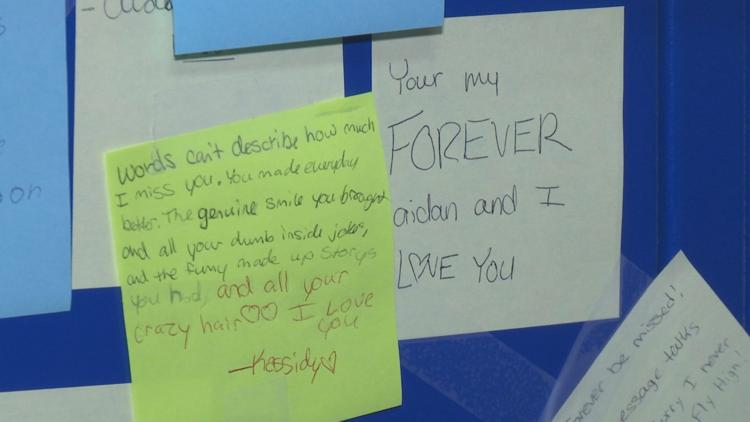 on
words can't describe how much
I miss you. You made everyday
better. The genuine smile you brought
and all your dumb inside jokes,
and the funny made up storys
you had, and all your
crazy hair♡♡ I LOVE
you
—Kassidy♡
Your my
FOREVER
aidan and I
LOVE YOU
orever be missed!
essage talks
rry I never
Fly High!